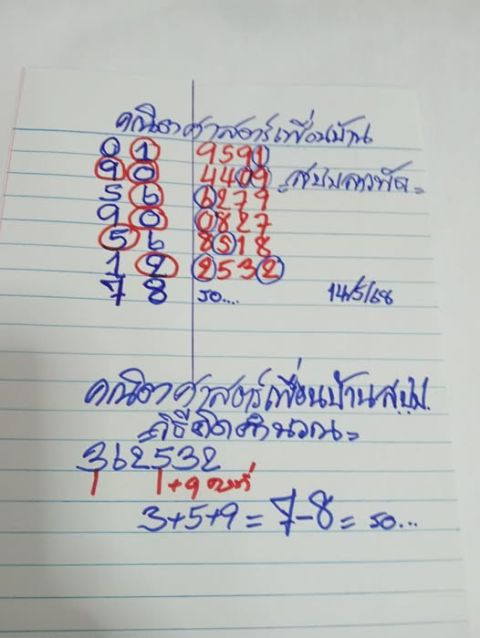 คณิตศาสตร์เพื่อนบ้าน
0 1 9591
9 0 4409 =สปปลาวพัด=
5 6 6279
9 0 0827
5 6 8518
1 2 2532
7 8 รอ.... 14/5/68
คณิตศาสตร์เพื่อนบ้านส.ป.ป.
=วิธีคิดคำนวณ=
362532
+9 คงที่
3+5+9=7-8= รอ...